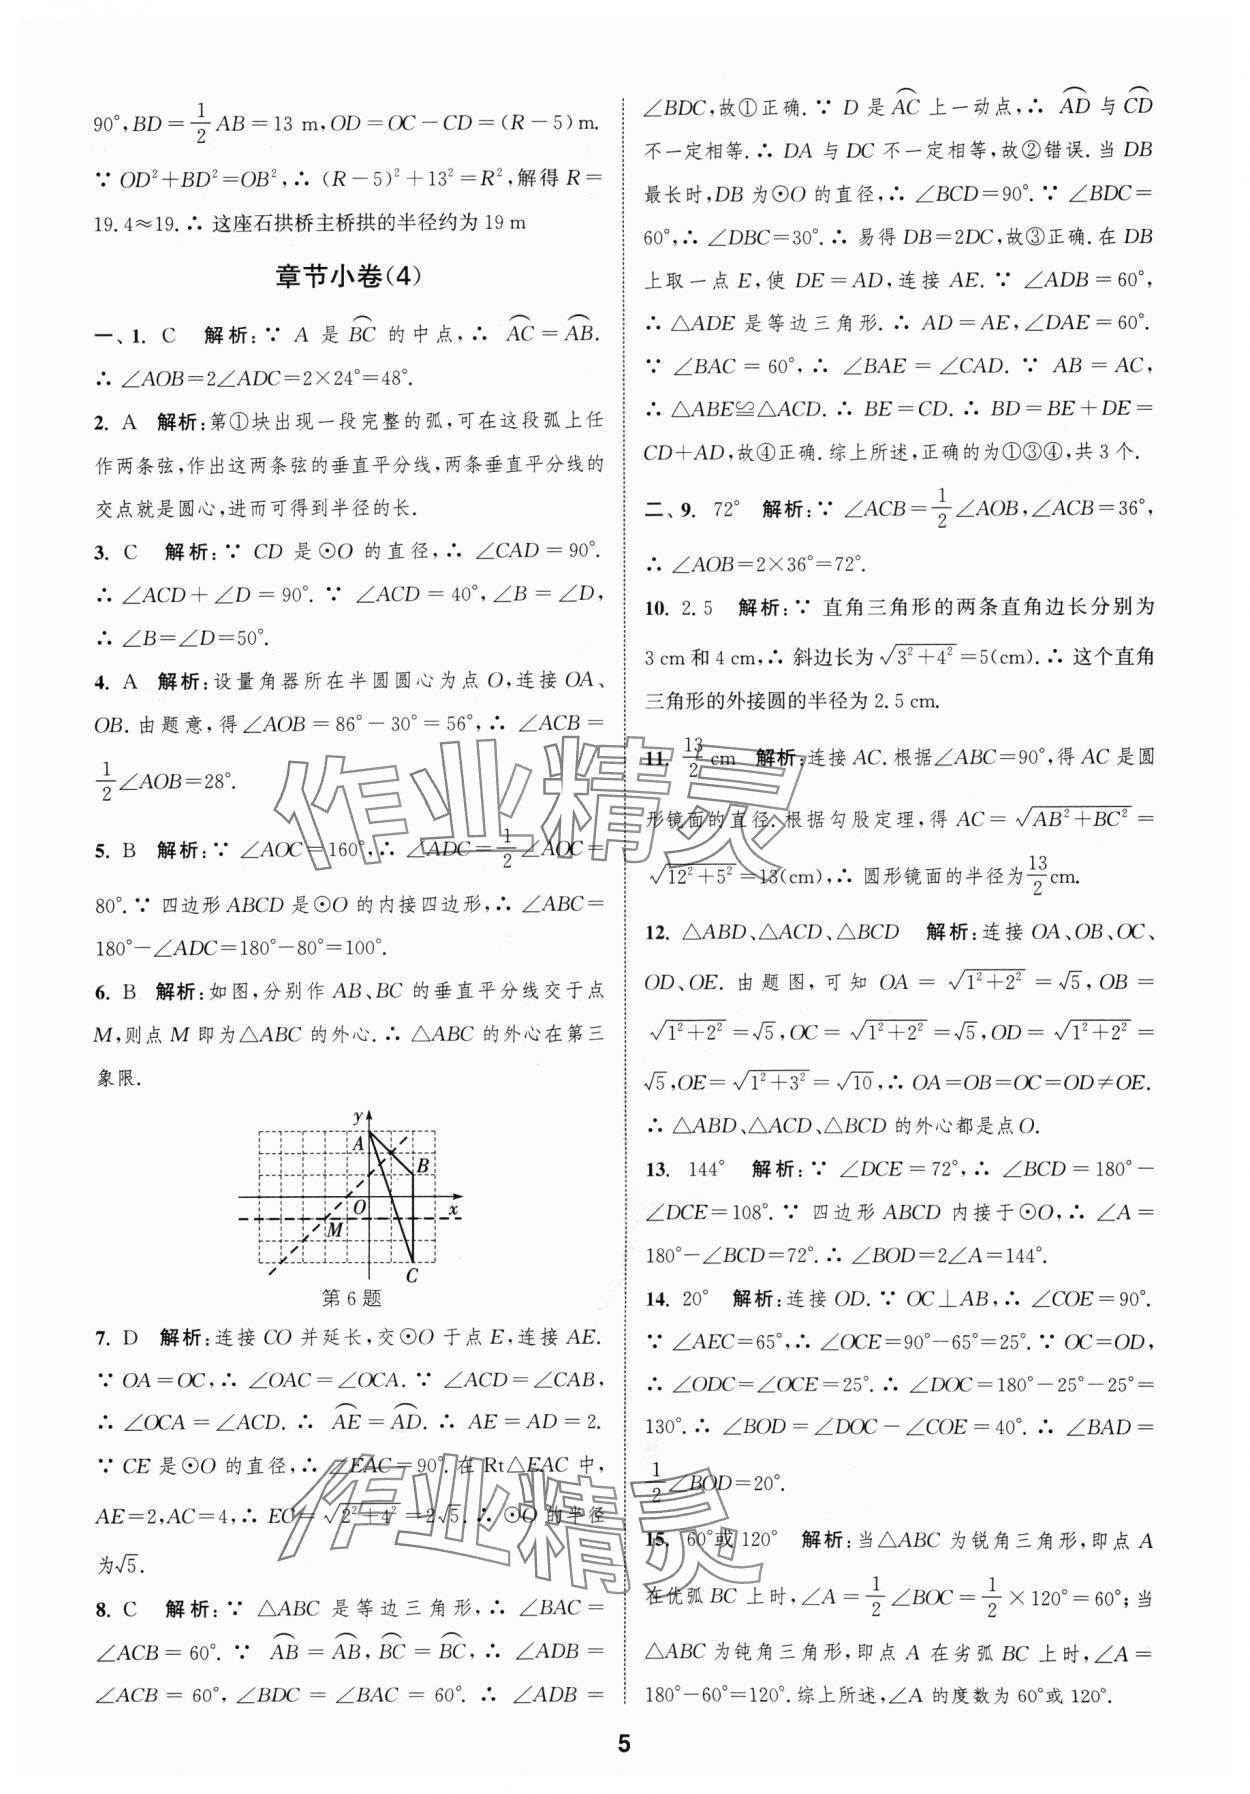 90°,BD=1/2AB=13 m,OD=OC-CD=(R-5)m.
∵ OD²+BD²=OB²,∴ (R-5)²+13²=R²,解得R=
19.4≈19.∴ 这座石拱桥主桥拱的半径约为19 m
章节小卷(4)
一、1. C 解析:∵ A 是 ⌒BC 的中点,∴ ⌒AC=⌒AB.
∴ ∠AOB=2∠ADC=2×24°=48°.
2. A 解析:第①块出现一段完整的弧,可在这段弧上任
作两条弦,作出这两条弦的垂直平分线,两条垂直平分线的
交点就是圆心,进而可得到半径的长.
3. C 解析:∵ CD 是⊙O 的直径,∴ ∠CAD=90°.
∴ ∠ACD+∠D=90°.∵ ∠ACD=40°,∠B=∠D,
∴ ∠B=∠D=50°.
4. A 解析:设量角器所在半圆圆心为点O,连接OA、
OB.由题意,得∠AOB=86°-30°=56°,∴ ∠ACB=
1/2∠AOB=28°.
5. B 解析:∵ ∠AOC=160°,∴ ∠ADC=1/2∠AOC=
80°.∵ 四边形ABCD是⊙O的内接四边形,∴ ∠ABC=
180°-∠ADC=180°-80°=100°.
6. B 解析:如图,分别作AB、BC的垂直平分线交于点
M,则点M即为△ABC的外心.∴ △ABC的外心在第三
象限.
y
A
B
O
x
M
C
第6题
7. D 解析:连接CO并延长,交⊙O于点E,连接AE.
∵ OA=OC,∴ ∠OAC=∠OCA.∵ ∠ACD=∠CAB,
∴ ∠OCA=∠ACD.∴ ⌒AE=⌒AD.∴ AE=AD=2.
∵ CE是⊙O的直径,∴ ∠EAC=90°.在Rt△EAC中,
AE=2,AC=4,∴ EC=√(2²+4²)=2√5.∴ ⊙O的半径
为√5.
8. C 解析:∵ △ABC是等边三角形,∴ ∠BAC=
∠ACB=60°.∵ ⌒AB=⌒AB,⌒BC=⌒BC,∴ ∠ADB=
∠ACB=60°,∠BDC=∠BAC=60°.∴ ∠ADB=
∠BDC,故①正确.∵ D是⌒AC上一动点,∴ ⌒AD与⌒CD
不一定相等.∴ DA与DC不一定相等,故②错误.当DB
最长时,DB为⊙O的直径,∴ ∠BCD=90°.∵ ∠BDC=
60°,∴ ∠DBC=30°.∴ 易得DB=2DC,故③正确.在DB
上取一点E,使DE=AD,连接AE.∵ ∠ADB=60°,
∴ △ADE是等边三角形.∴ AD=AE,∠DAE=60°.
∵ ∠BAC=60°,∴ ∠BAE=∠CAD.∵ AB=AC,
∴ △ABE≌△ACD.∴ BE=CD.∴ BD=BE+DE=
CD+AD,故④正确.综上所述,正确的为①③④,共3个.
二、9. 72° 解析:∵ ∠ACB=1/2∠AOB,∠ACB=36°,
∴ ∠AOB=2×36°=72°.
10. 2.5 解析:∵ 直角三角形的两条直角边长分别为
3 cm和4 cm,∴ 斜边长为√(3²+4²)=5(cm).∴ 这个直角
三角形的外接圆的半径为2.5 cm.
11. 13/2 cm 解析:连接AC.根据∠ABC=90°,得AC是圆
形镜面的直径.根据勾股定理,得AC=√(AB²+BC²)=
√(12²+5²)=13(cm),∴ 圆形镜面的半径为13/2cm.
12. △ABD、△ACD、△BCD 解析:连接OA、OB、OC、
OD、OE.由题图,可知OA=√(1²+2²)=√5,OB=
√(1²+2²)=√5,OC=√(1²+2²)=√5,OD=√(1²+2²)=
√5,OE=√(1²+3²)=√10,∴ OA=OB=OC=OD≠OE.
∴ △ABD、△ACD、△BCD的外心都是点O.
13. 144° 解析:∵ ∠DCE=72°,∴ ∠BCD=180°-
∠DCE=108°.∵ 四边形ABCD内接于⊙O,∴ ∠A=
180°-∠BCD=72°.∴ ∠BOD=2∠A=144°.
14. 20° 解析:连接OD.∵ OC⊥AB,∴ ∠COE=90°.
∵ ∠AEC=65°,∴ ∠OCE=90°-65°=25°.∵ OC=OD,
∴ ∠ODC=∠OCE=25°.∴ ∠DOC=180°-25°-25°=
130°.∴ ∠BOD=∠DOC-∠COE=40°.∴ ∠BAD=
1/2∠BOD=20°.
15. 60°或120° 解析:当△ABC为锐角三角形,即点A
在优弧BC上时,∠A=1/2∠BOC=1/2×120°=60°;当
△ABC为钝角三角形,即点A在劣弧BC上时,∠A=
180°-60°=120°.综上所述,∠A的度数为60°或120°.
作业精灵
作业精灵
5